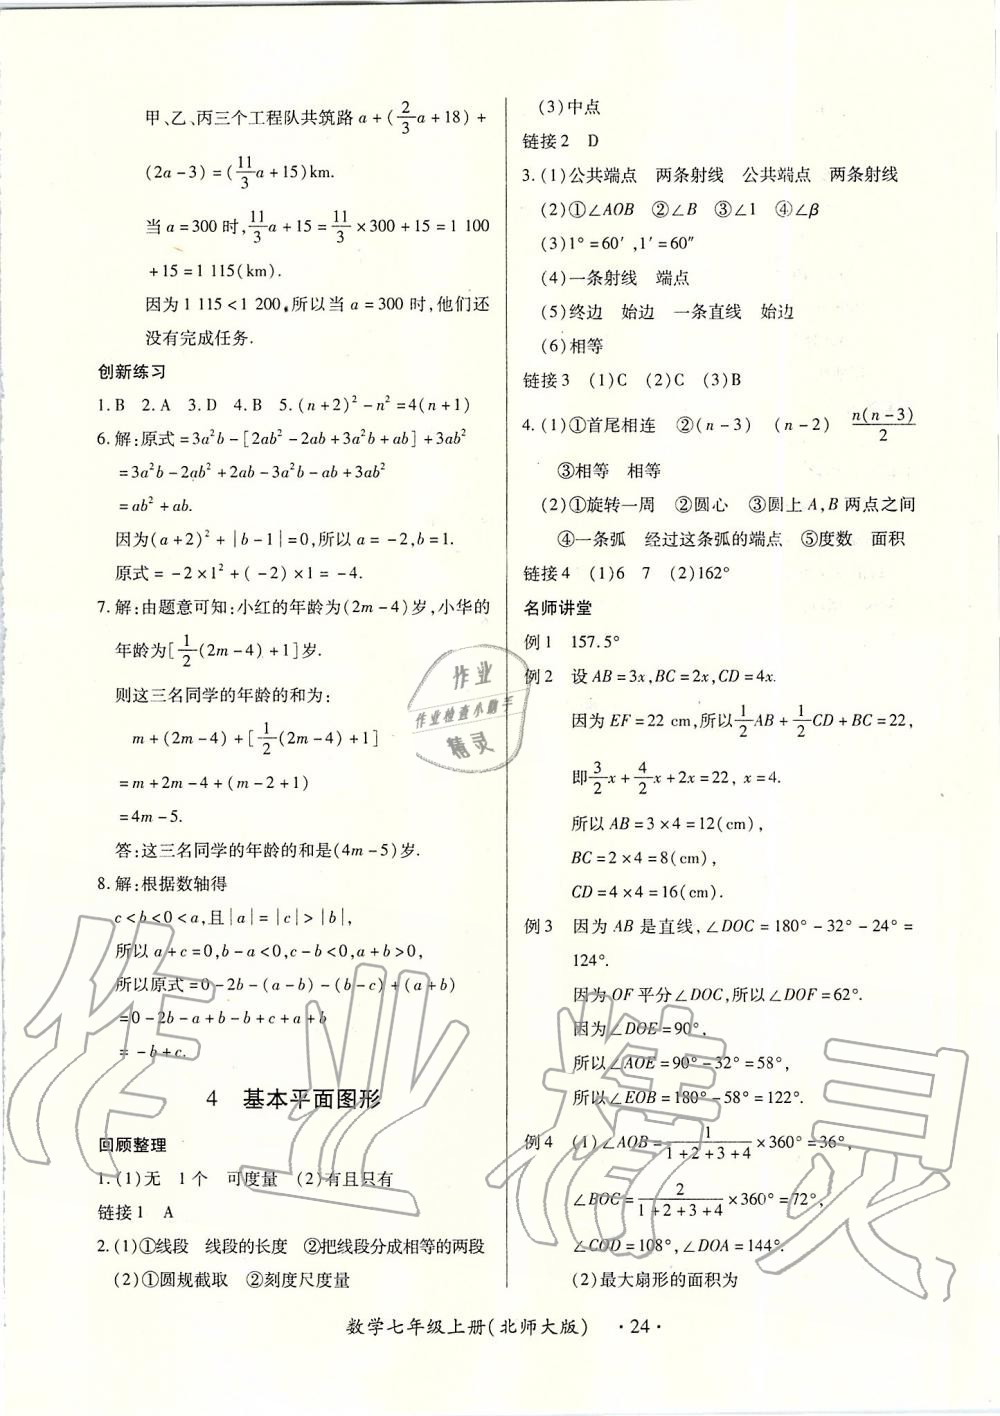 甲、乙、丙三个工程队共筑路 a+(2/3a+18)+
(2a-3)=(11/3a+15)km.
当 a=300 时,11/3a+15=11/3×300+15=1 100
+15=1 115(km).
因为 1 115<1 200,所以当 a=300 时,他们还
没有完成任务.
创新练习
1. B 2. A 3. D 4. B 5. (n+2)²-n²=4(n+1)
6. 解:原式=3a²b-[2ab²-2ab+3a²b+ab]+3ab²
=3a²b-2ab²+2ab-3a²b-ab+3ab²
=ab²+ab.
因为(a+2)²+|b-1|=0,所以 a=-2,b=1.
原式=-2×1²+(-2)×1=-4.
7. 解:由题意可知:小红的年龄为(2m-4)岁,小华的
年龄为[1/2(2m-4)+1]岁.
则这三名同学的年龄的和为:
m+(2m-4)+[1/2(2m-4)+1]
=m+2m-4+(m-2+1)
=4m-5.
答:这三名同学的年龄的和是(4m-5)岁.
8. 解:根据数轴得
c<b<0<a,且|a|=|c|>|b|,
所以 a+c=0,b-a<0,c-b<0,a+b>0,
所以原式=0-2b-(a-b)-(b-c)+(a+b)
=0-2b-a+b-b+c+a+b
=-b+c.
4 基本平面图形
回顾整理
1. (1)无 1个 可度量 (2)有且只有
链接1 A
2. (1)①线段 线段的长度 ②把线段分成相等的两段
(2)①圆规截取 ②刻度尺度量
(3)中点
链接2 D
3. (1)公共端点 两条射线 公共端点 两条射线
(2)①∠AOB ②∠B ③∠1 ④∠β
(3)1°=60′,1′=60″
(4)一条射线 端点
(5)终边 始边 一条直线 始边
(6)相等
链接3 (1)C (2)C (3)B
4. (1)①首尾相连 ②(n-3) (n-2) n(n-3)/2
③相等 相等
(2)①旋转一周 ②圆心 ③圆上 A,B 两点之间
④一条弧 经过这条弧的端点 ⑤度数 面积
链接4 (1)6 7 (2)162°
名师讲堂
例1 157.5°
例2 设 AB=3x,BC=2x,CD=4x.
因为 EF=22 cm,所以1/2AB+1/2CD+BC=22,
即3/2x+4/2x+2x=22, x=4.
所以 AB=3×4=12(cm),
BC=2×4=8(cm),
CD=4×4=16(cm).
例3 因为 AB 是直线,∠DOC=180°-32°-24°=
124°.
因为 OF 平分∠DOC,所以∠DOF=62°.
因为∠DOE=90°,
所以∠AOE=90°-32°=58°,
所以∠EOB=180°-58°=122°.
例4 (1)∠AOB=1/(1+2+3+4)×360°=36°,
∠BOC=2/(1+2+3+4)×360°=72°,
∠COD=108°,∠DOA=144°.
(2)最大扇形的面积为
数学七年级上册(北师大版) ·24·
作业
作业检查小助手
精灵
作业精灵